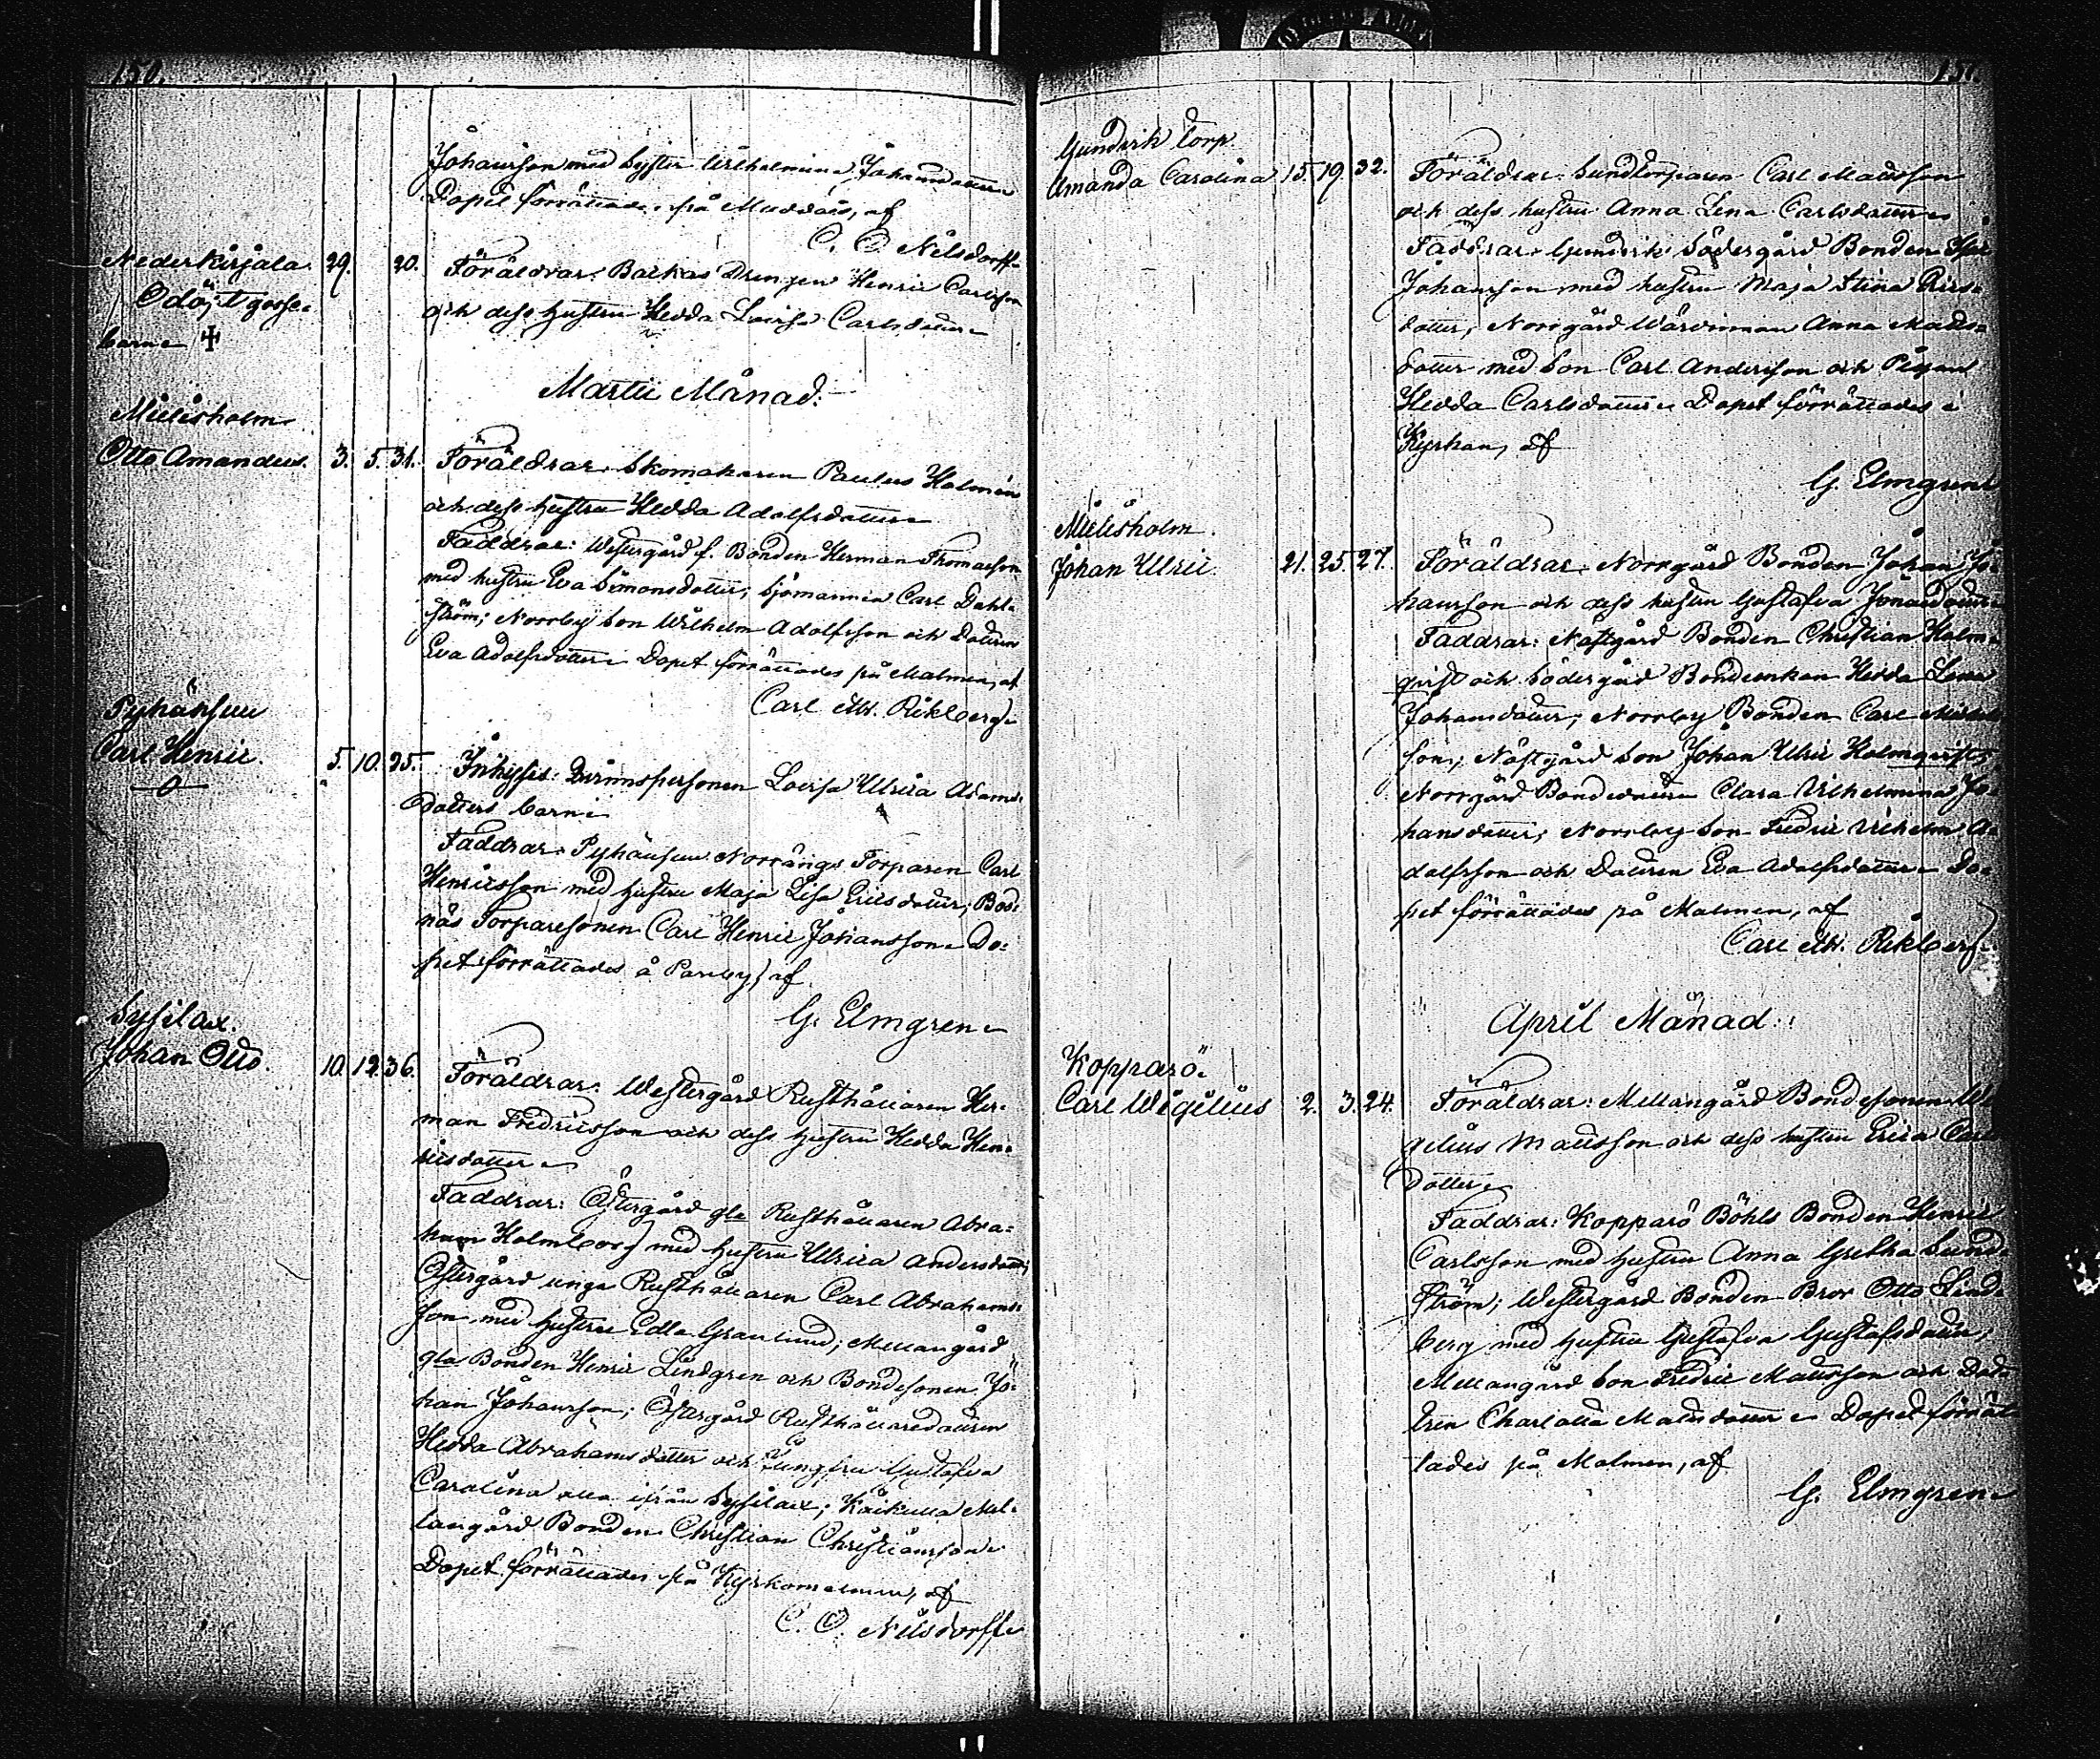 150.
Johansson med Syster Wilhelmina Johansdotter
Dopet förrättades på Muddais, af
C. O. Nilsdorff
Nederkirjala 29. 20. Föräldrar: Backas Drengen Henric Carlsson
Odöpt gosse-
barn ✝
och dess hustru Hedda Lovisa Carlsdotter
Martii Månad.
Mielisholm
Otto Amandus. 3. 5. 31. Föräldrar: Skomakaren Paulus Holmén
och dess hustru Hedda Adolfsdotter
Faddrar: Westergård f. Bonden Herman Thomasson
med hustru Eva Simonsdotter; Sjömannen Carl Dahl-
ström; Norrby Son Wilhelm Adolfsson och Dottren
Eva Adolfsdotter. Dopet förrättades på Malmen, af
Carl Rikberg
Pyhänsuu
Carl Henric. 5. 10. 25. Inhyses: Qvinnspersonen Lovisa Ulrica Adams-
O
dotters barn.
Faddrar: Pyhänsuu Norrängs Torparen Carl
Henricsson med hustru Maja Lisa Ericsdotter; Bos-
näs Torparesonen Carl Henric Johansson. Do-
pet förrättades å Parsby, af
G. Elmgren
Sysilax.
Johan Otto. 10. 12. 36. Föräldrar: Westergård Rusthållaren Her-
man Fredricsson och dess hustru Hedda Hen-
ricsdotter
Faddrar: Östergård gla Rusthållaren Abra-
ham Holmberg med hustru Ulrica Andersdotter;
Östergård unga Rusthållaren Carl Abrahams-
son med hustru Edla Granlund; Mellangård
gla Bonden Henric Lindgren och Bondesonen Jo-
han Johansson; Östergård Rusthållaredottren
Hedda Abrahamsdotter och Jungfru Gustafva
Carolina alla ifrån Sysilax; Kaikulla Mel-
langård Bonden Christian Christiansson.
Dopet förrättades på Kyrkomalmen, af
C. O. Nilsdorff
151.
Gundvik Torp.
Amanda Carolina 15. 19. 32. Föräldrar: Sundtorparen Carl Mattsson
och dess hustru Anna Lena Carlsdotter
Faddrar: Gundvik Södergård Bonden
Johansson med hustru Maja Stina Erics-
dotter, Norrgård Wärdinnan Anna Mats-
dotter med Son Carl Andersson och Pigan
Hedda Carlsdotter. Dopet förrättades i
Kyrkan, af
G. Elmgren
Mielisholm.
Johan Ulric. 21. 25. 27. Föräldrar: Norrgård Bonden Johan Jo-
hansson och dess hustru Gustafva Jonasdotter
Faddrar: Nästgård Bonden Christian Holm-
qvist och Södergård Bondeenkan Hedda Lena
Johansdotter; Norrby Bonden Carl
son; Nästgård Son Johan Ulric Holmqvist;
Norrgård Bondedottren Clara Wilhelmina Jo-
hansdotter; Norrby Son Fredric Wilhelm A-
dolfsson och Dottren Eva Adolfsdotter. Do-
pet förrättades på Malmen, af
Carl Rikberg
April Månad.
Kopparö.
Carl Wigilius 2. 3. 24. Föräldrar: Mellangård Bondesonen Wi-
gilius Mattsson och dess hustru Erica Carls-
dotter
Faddrar: Kopparö Böhls Bonden Henric
Carlsson med hustru Anna Gretha Sund-
ström; Westergård Bonden Bror Otto Lind-
berg med hustru Gustafva Gustafsdotter;
Mellangård Son Fredric Mattsson och Dot-
tren Charlotta Matsdotter. Dopet förrät-
tades på Malmen, af
G. Elmgren